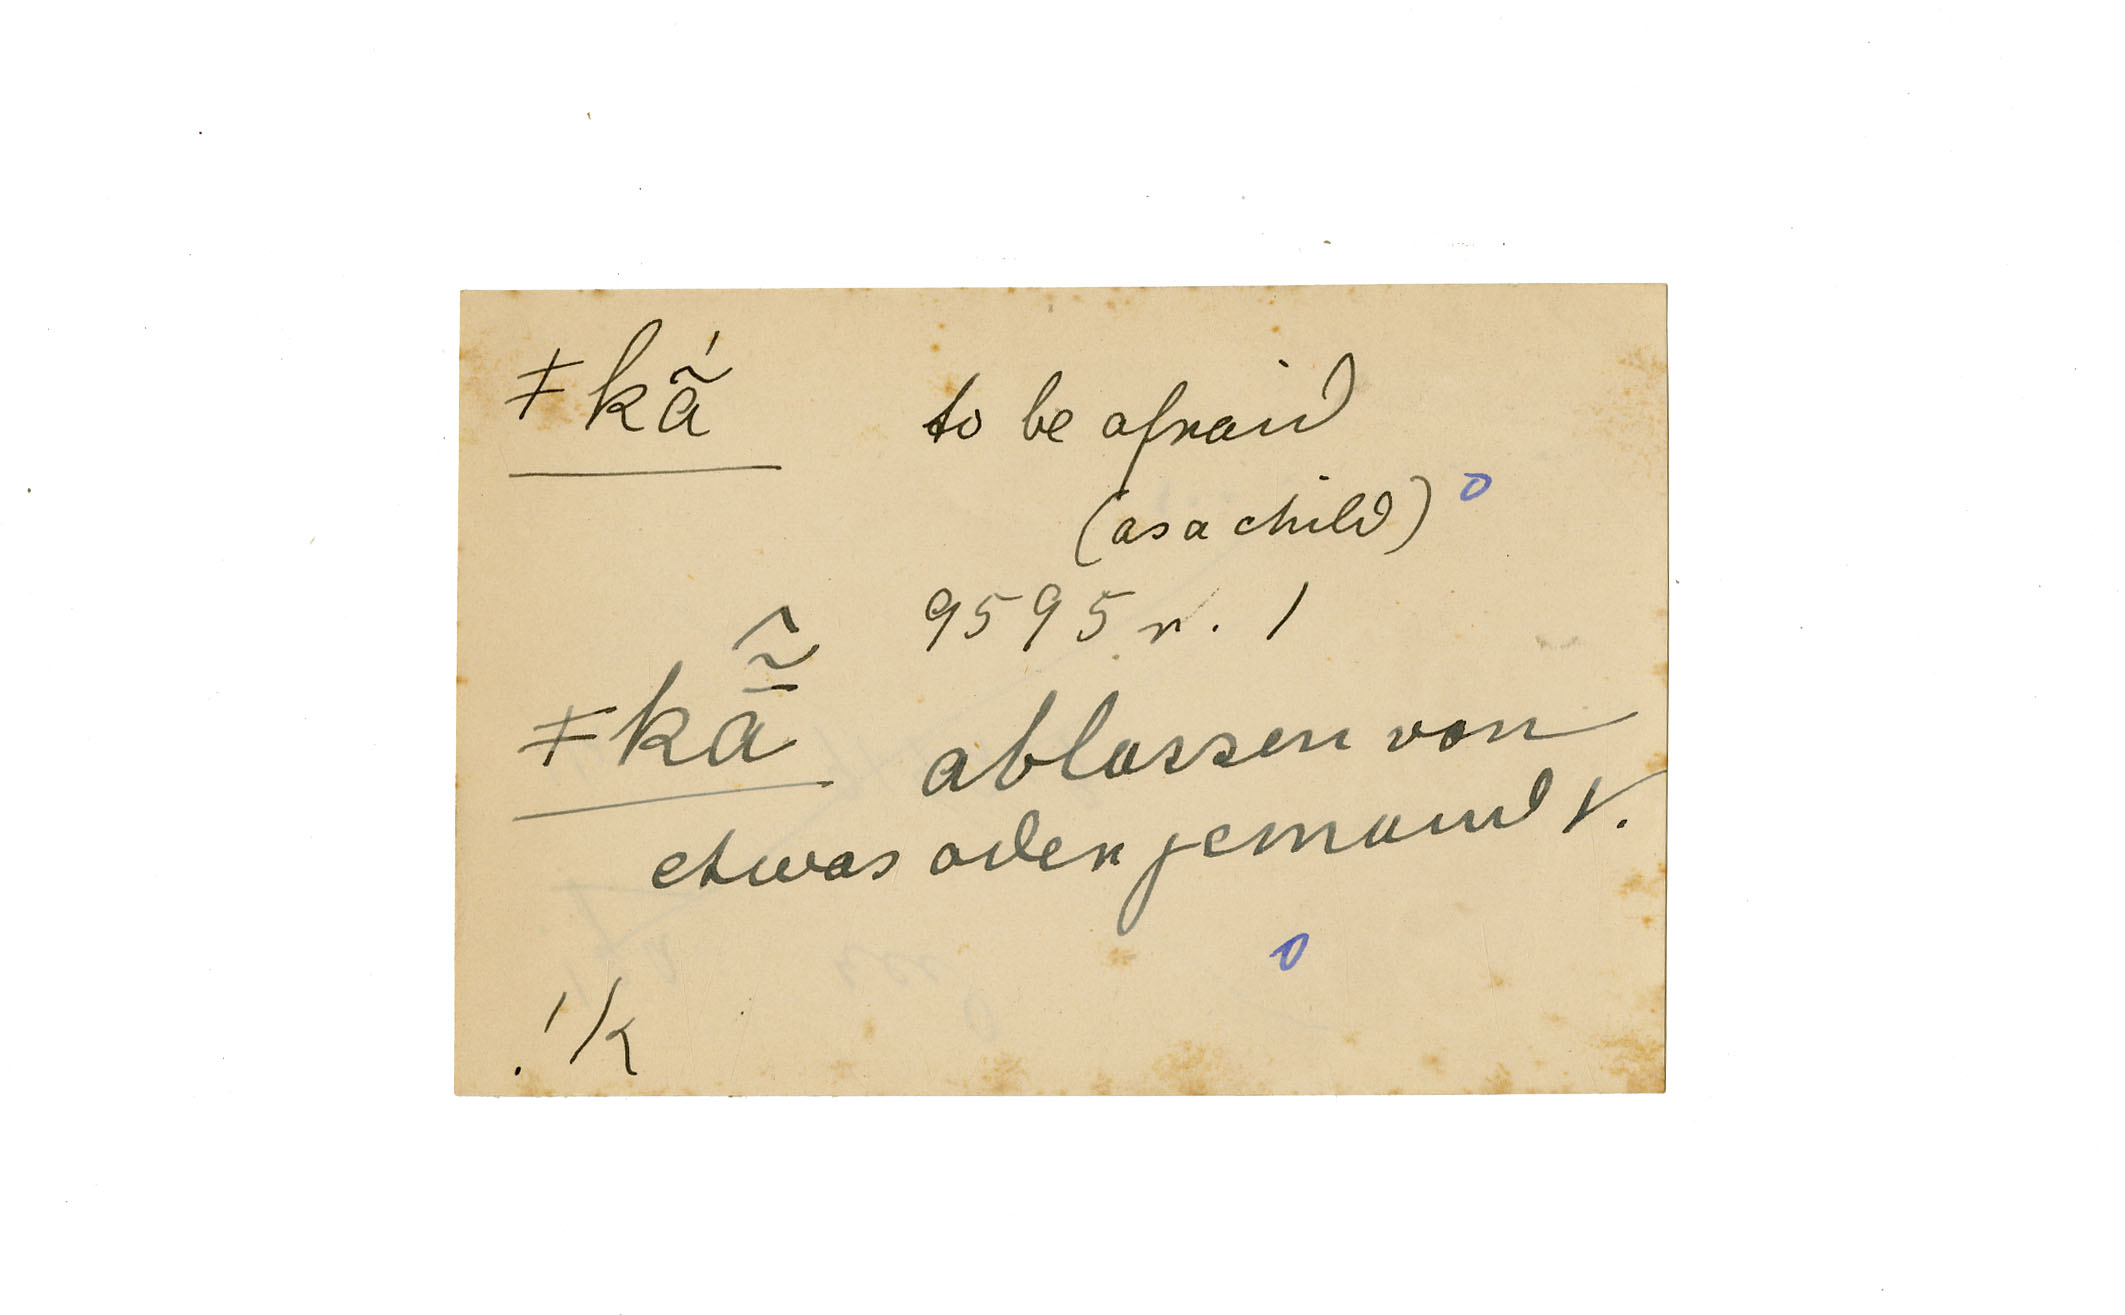 ǂkã́ to be afraid
(as a child) o
9595 r. 1
ǂkã̄̂ ablassen von
etwas oder jemand V.
o
!k